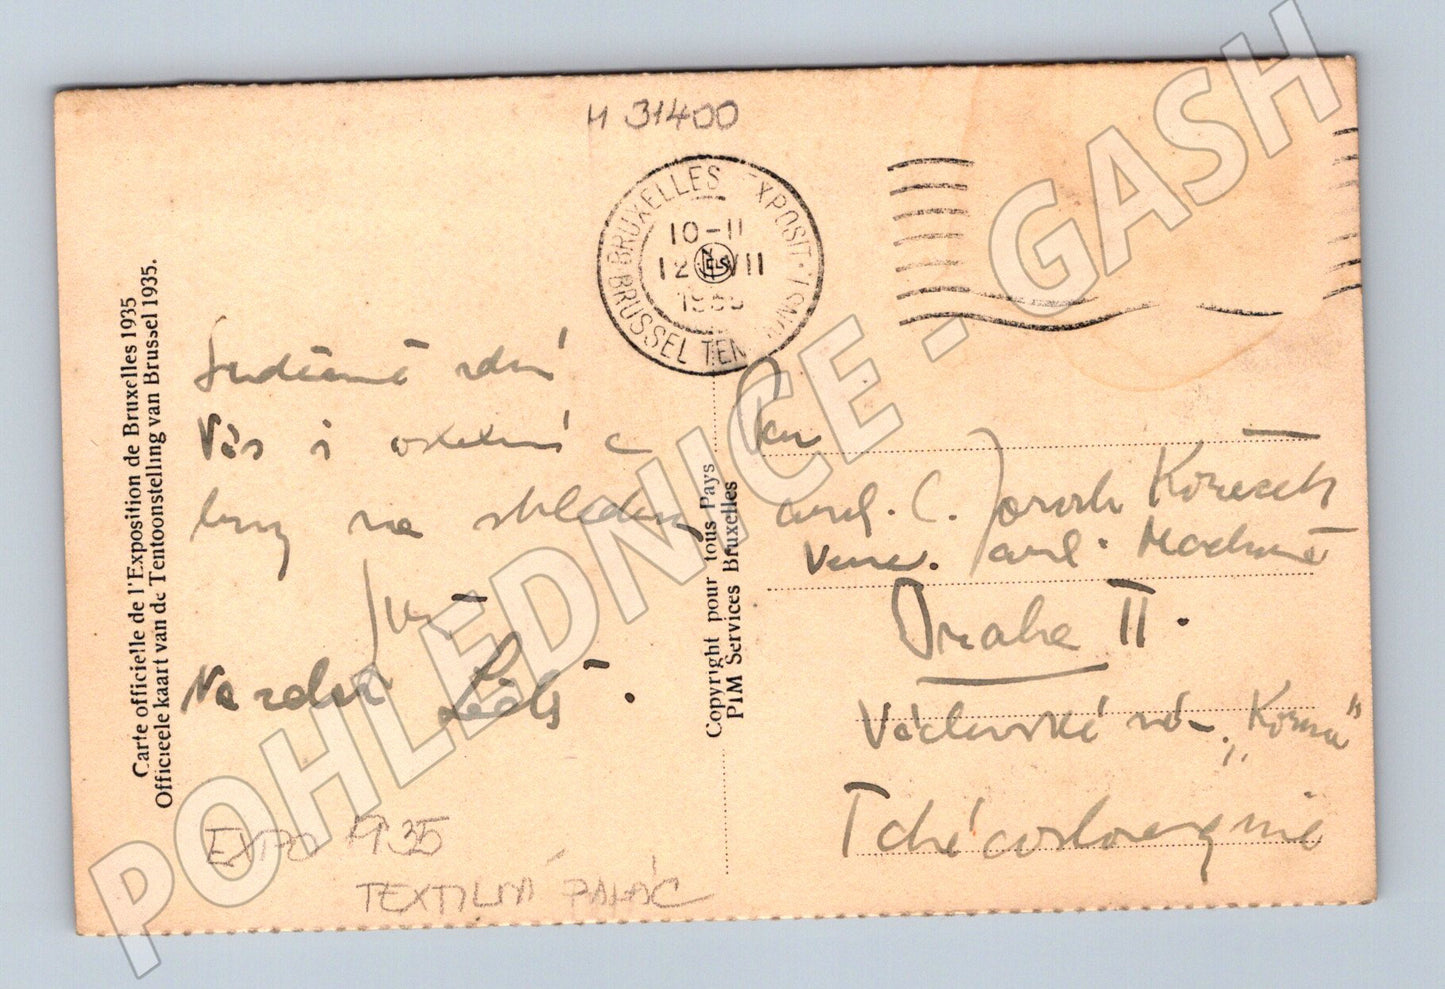 И 31400
BRUXELLES EXPOSIT.
10-11
12 VII
1935
BRUSSEL TEN
Carte officielle de l'Exposition de Bruxelles 1935
Officieele kaart van de Tentoonstelling van Brussel 1935.
Srdečně zdraví
Vás i ostatní a
brzy na shledanou
Na zdar
Copyright pour tous Pays
PIM Services Bruxelles
Pan
Praha II.
Václavské nám. „Koruna"
Tchécoslovaquie
EXPO 1935
TEXTILNÍ PALÁC
POHLEDNICE - GASH